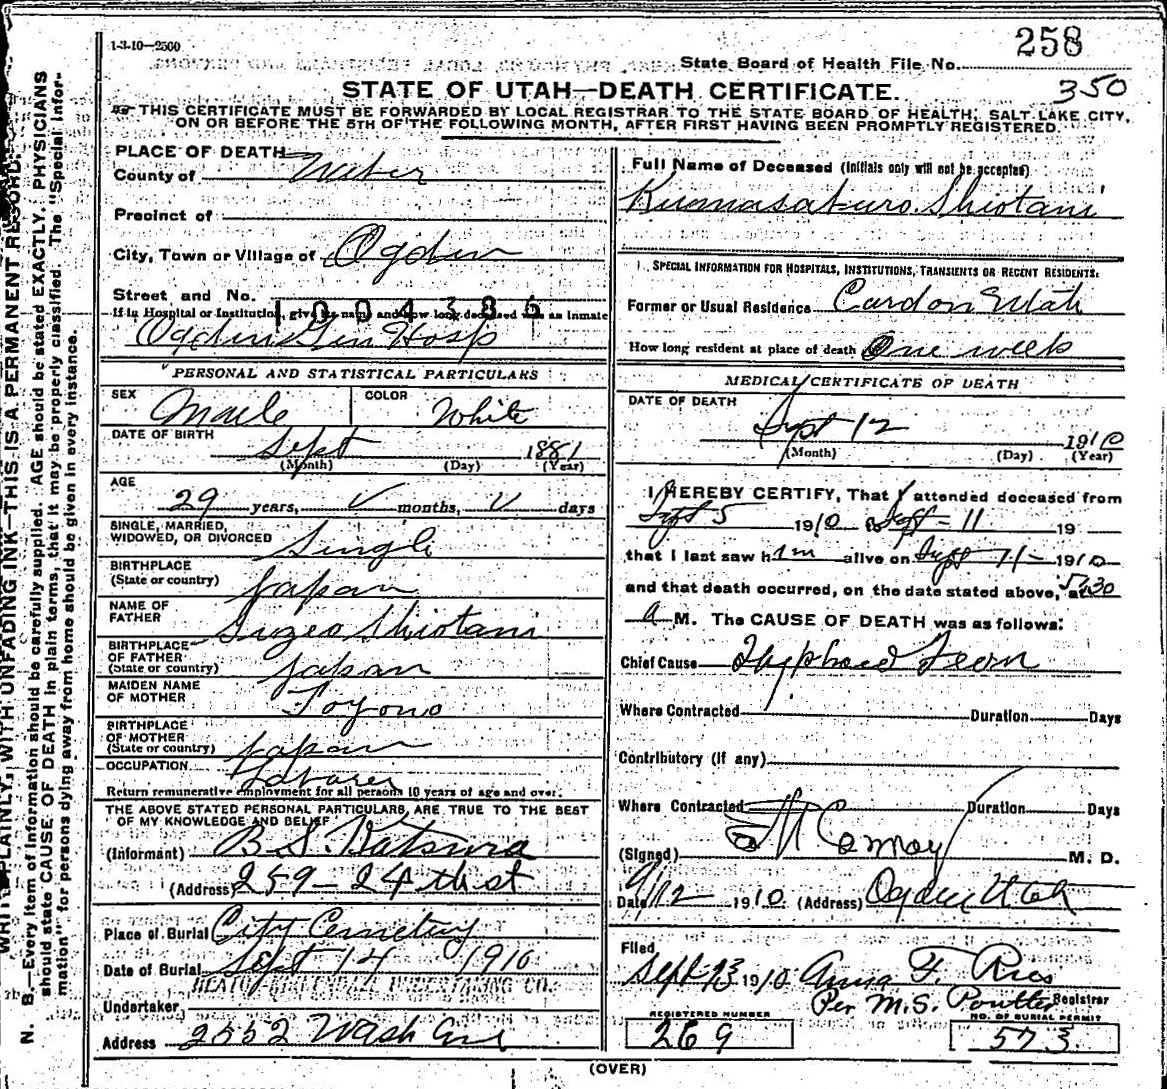 1-3-10—2500
258
State Board of Health File No.
350
STATE OF UTAH—DEATH CERTIFICATE.
THIS CERTIFICATE MUST BE FORWARDED BY LOCAL REGISTRAR TO THE STATE BOARD OF HEALTH, SALT LAKE CITY,
ON OR BEFORE THE 5TH OF THE FOLLOWING MONTH, AFTER FIRST HAVING BEEN PROMPTLY REGISTERED.
WRITE PLAINLY, WITH UNFADING INK—THIS IS A PERMANENT RECORD.
N. B.—Every item of information should be carefully supplied. AGE should be stated EXACTLY. PHYSICIANS
should state CAUSE OF DEATH in plain terms, that it may be properly classified. The "Special Infor-
mation" for persons dying away from home should be given in every instance.
PLACE OF DEATH
County of Weber
Precinct of
City, Town or Village of Ogden
Street and No.
1004386
If in Hospital or Institution, give its name and how long deceased was an inmate
Ogden Gen Hosp
PERSONAL AND STATISTICAL PARTICULARS
SEX Male COLOR White
DATE OF BIRTH
Sept 1881
(Month) (Day) (Year)
AGE
29 years, months, days
SINGLE, MARRIED,
WIDOWED, OR DIVORCED Single
BIRTHPLACE
(State or country) Japan
NAME OF
FATHER Shiotani
BIRTHPLACE
OF FATHER
(State or country) Japan
MAIDEN NAME
OF MOTHER Toyono
BIRTHPLACE
OF MOTHER
(State or country) Japan
OCCUPATION Laborer
Return remunerative employment for all persons 10 years of age and over.
THE ABOVE STATED PERSONAL PARTICULARS, ARE TRUE TO THE BEST
OF MY KNOWLEDGE AND BELIEF
(Informant) B. S.
(Address) 259-24th st
Place of Burial City Cemetery
Date of Burial Sept 14 1910
UNDERTAKING CO.
Undertaker
Address 2552 Wash Ave
Full Name of Deceased (Initials only will not be accepted)
Kumasaburo Shiotani
SPECIAL INFORMATION FOR HOSPITALS, INSTITUTIONS, TRANSIENTS OR RECENT RESIDENTS:
Former or Usual Residence Cardon Utah
How long resident at place of death One week
MEDICAL CERTIFICATE OF DEATH
DATE OF DEATH
Sept 12 1910
(Month) (Day) (Year)
I HEREBY CERTIFY, That I attended deceased from
Sept 5 1910 to Sept-11 19
that I last saw him alive on Sept 11- 1910
and that death occurred, on the date stated above, at 5:30
a M. The CAUSE OF DEATH was as follows:
Chief Cause Typhoid Fever
Where Contracted Duration Days
Contributory (if any)
Where Contracted Duration Days
(Signed) Conroy M. D.
Date 9/12 1910 (Address) Ogden Utah
Filed
Sept 13 1910 Anna F. Ries
Per M.S. Registrar
REGISTERED NUMBER
269
NO. OF BURIAL PERMIT
573
(OVER)